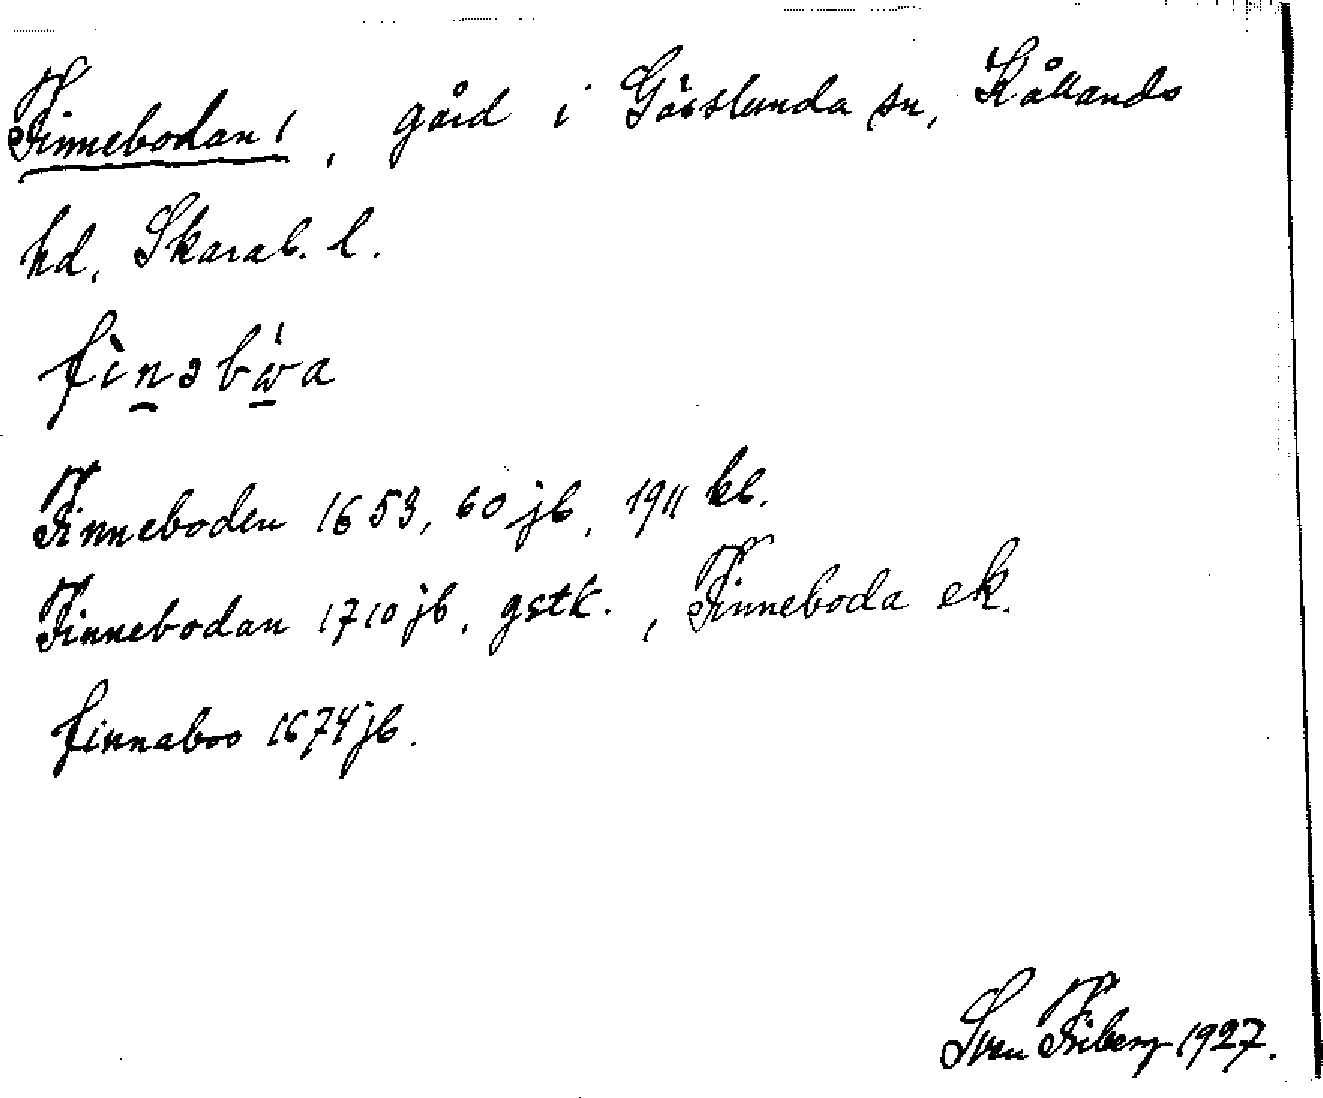 Finnebodan 1, gård i Gösslunda sn, Kållands
hd, Skarab. l.
Finneboden 1653, 60 jb, 1911 kb.
Finnebodan 1710 jb, gstk., Finneboda ek.
finnaboo 1674 jb.
Sven Friberg 1927.